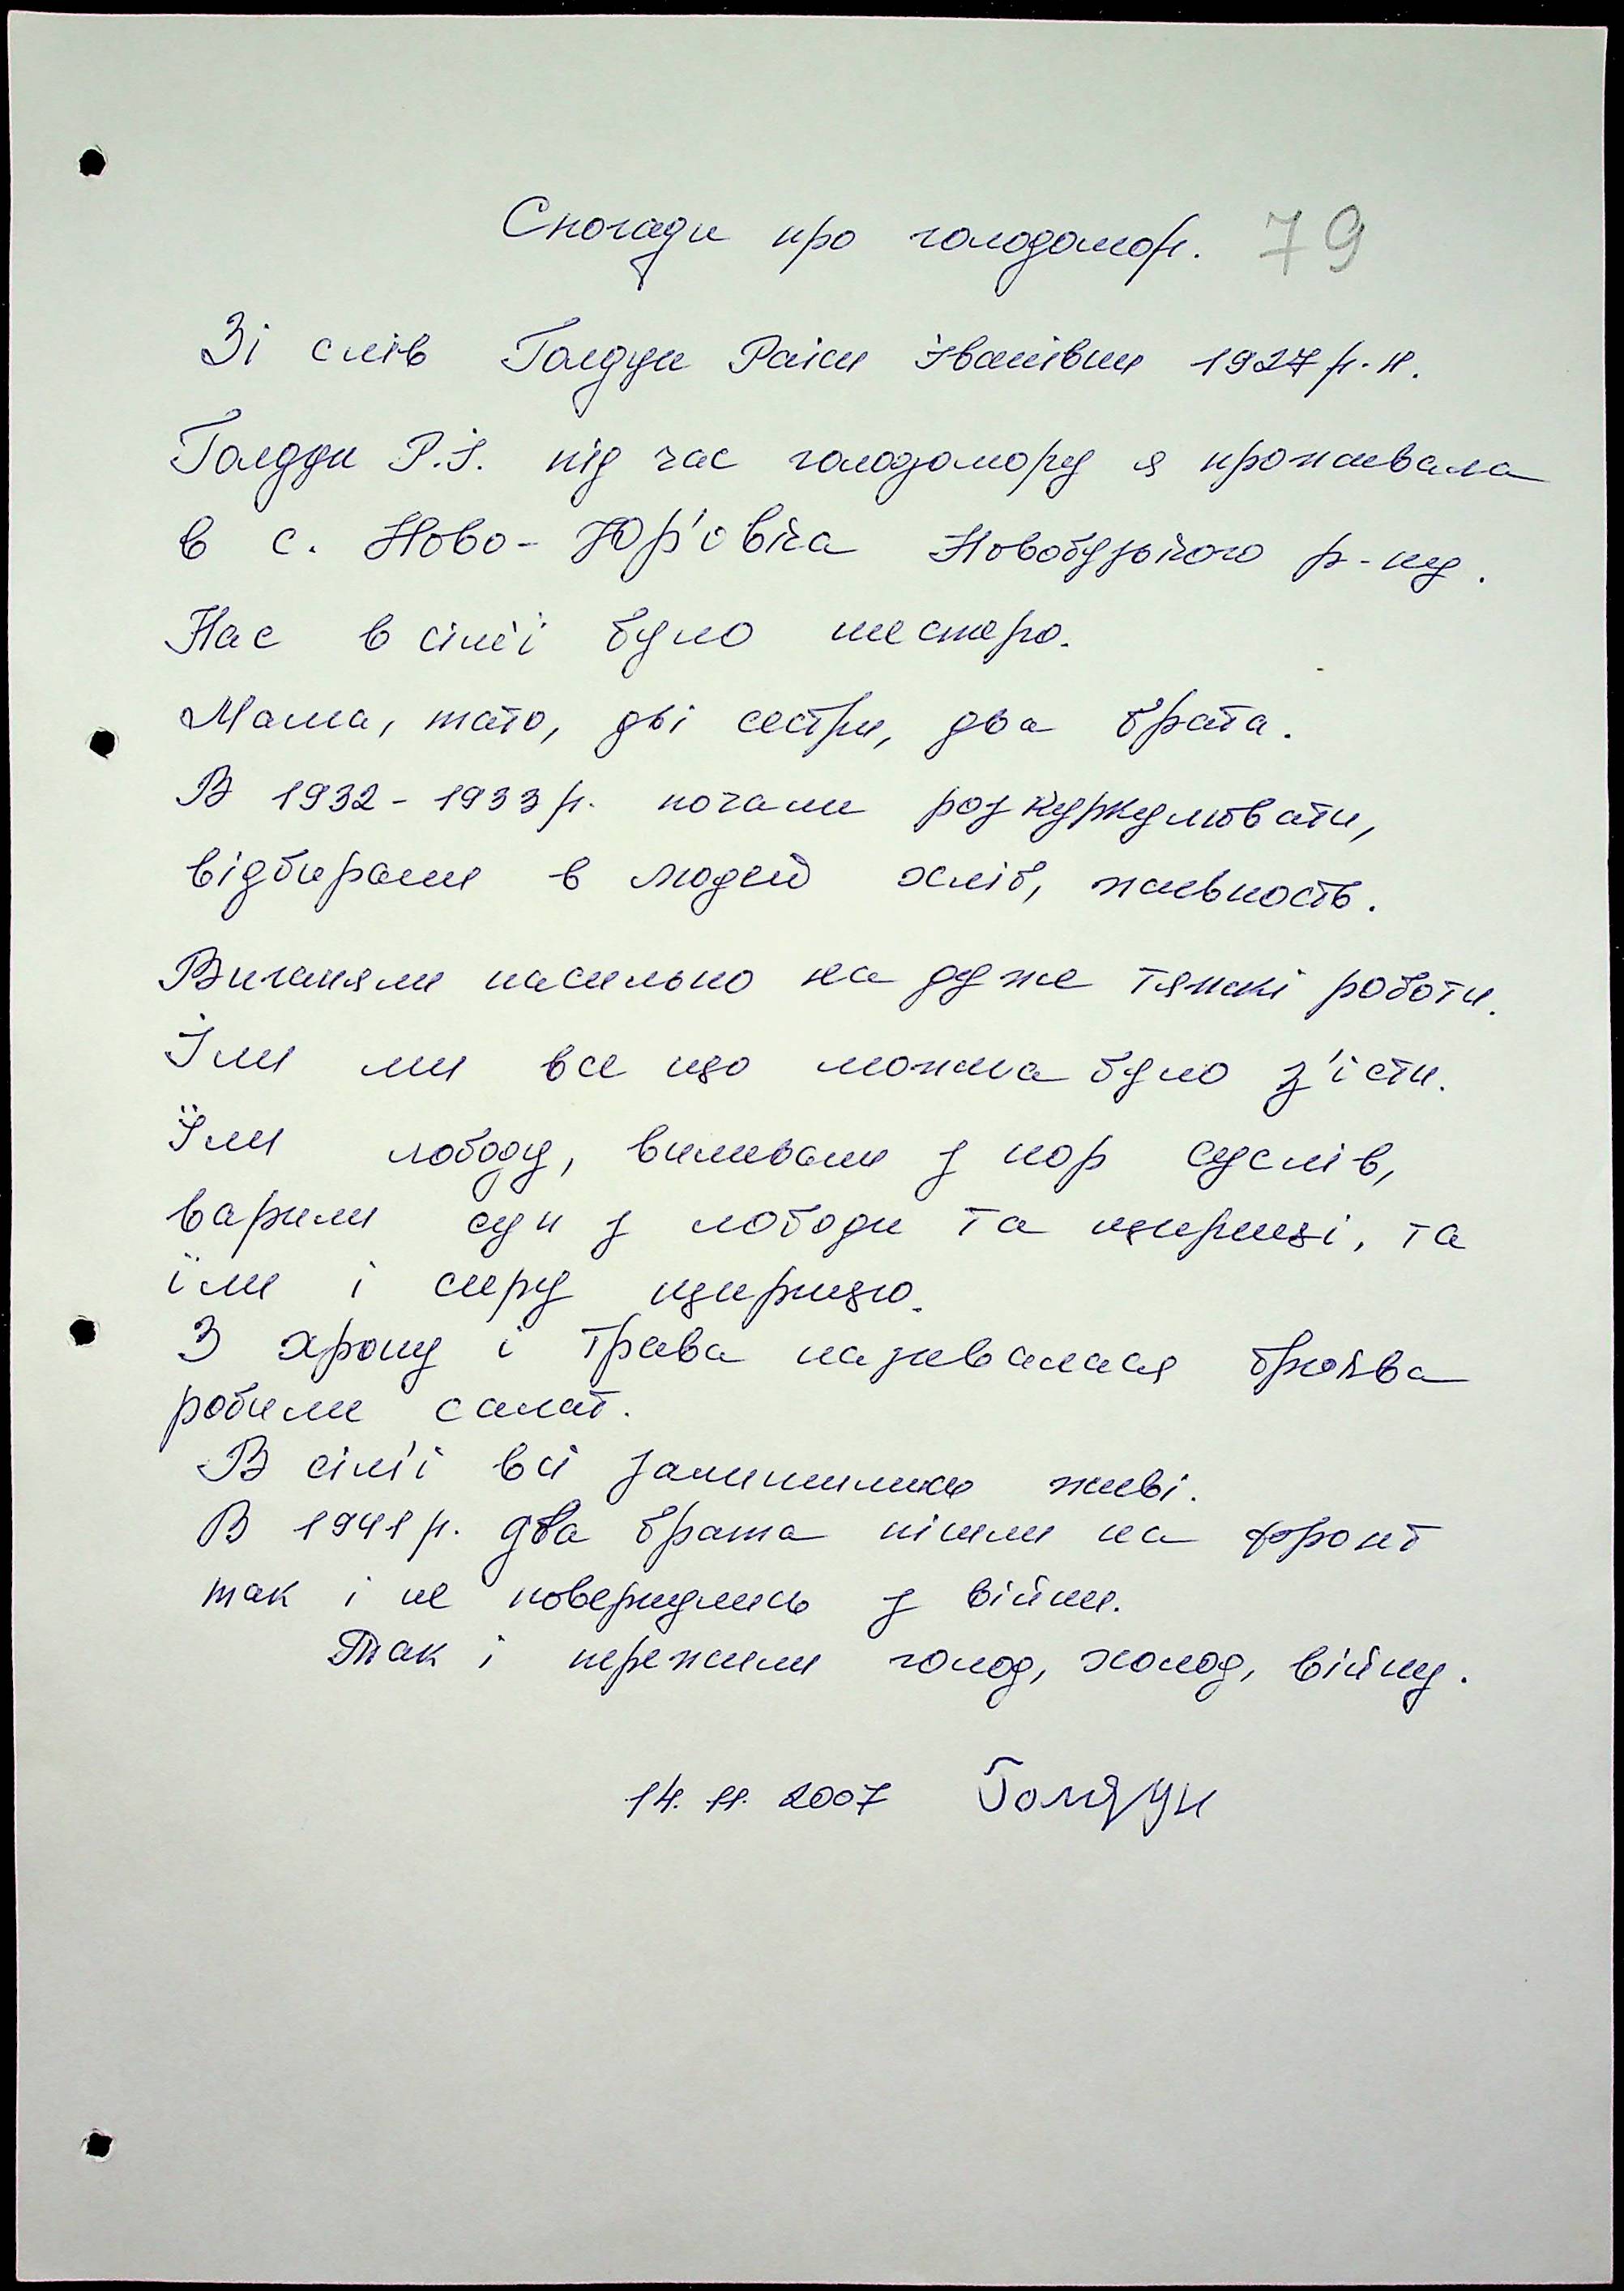 Спогади про голодомор. 79
Зі слів Голдун Раїси Іванівни 1927 р.н.
Голдун Р.І. під час голодомору я проживала
в с. Ново-Юр'овка Новобузького р-ну.
Нас в сім'ї було шестеро.
Мама, тато, дві сестри, два брата.
В 1932-1933 р. почали розкуркулювати,
відбирали в людей хліб, живность.
Виганяли насильно на дуже тяжкі роботи.
Їли ми все що можна було з'їсти.
Їли лободу, виливали з нор суслів,
варили суп з лободи та щириці, та
їли і сиру щирицю.
З хрону і трава називалася
робили салат.
В сім'ї всі залишились живі.
В 1941 р. два брата пішли на фронт
так і не повернулись з війни.
Так і пережили голод, холод, війну.
14. 11. 2007